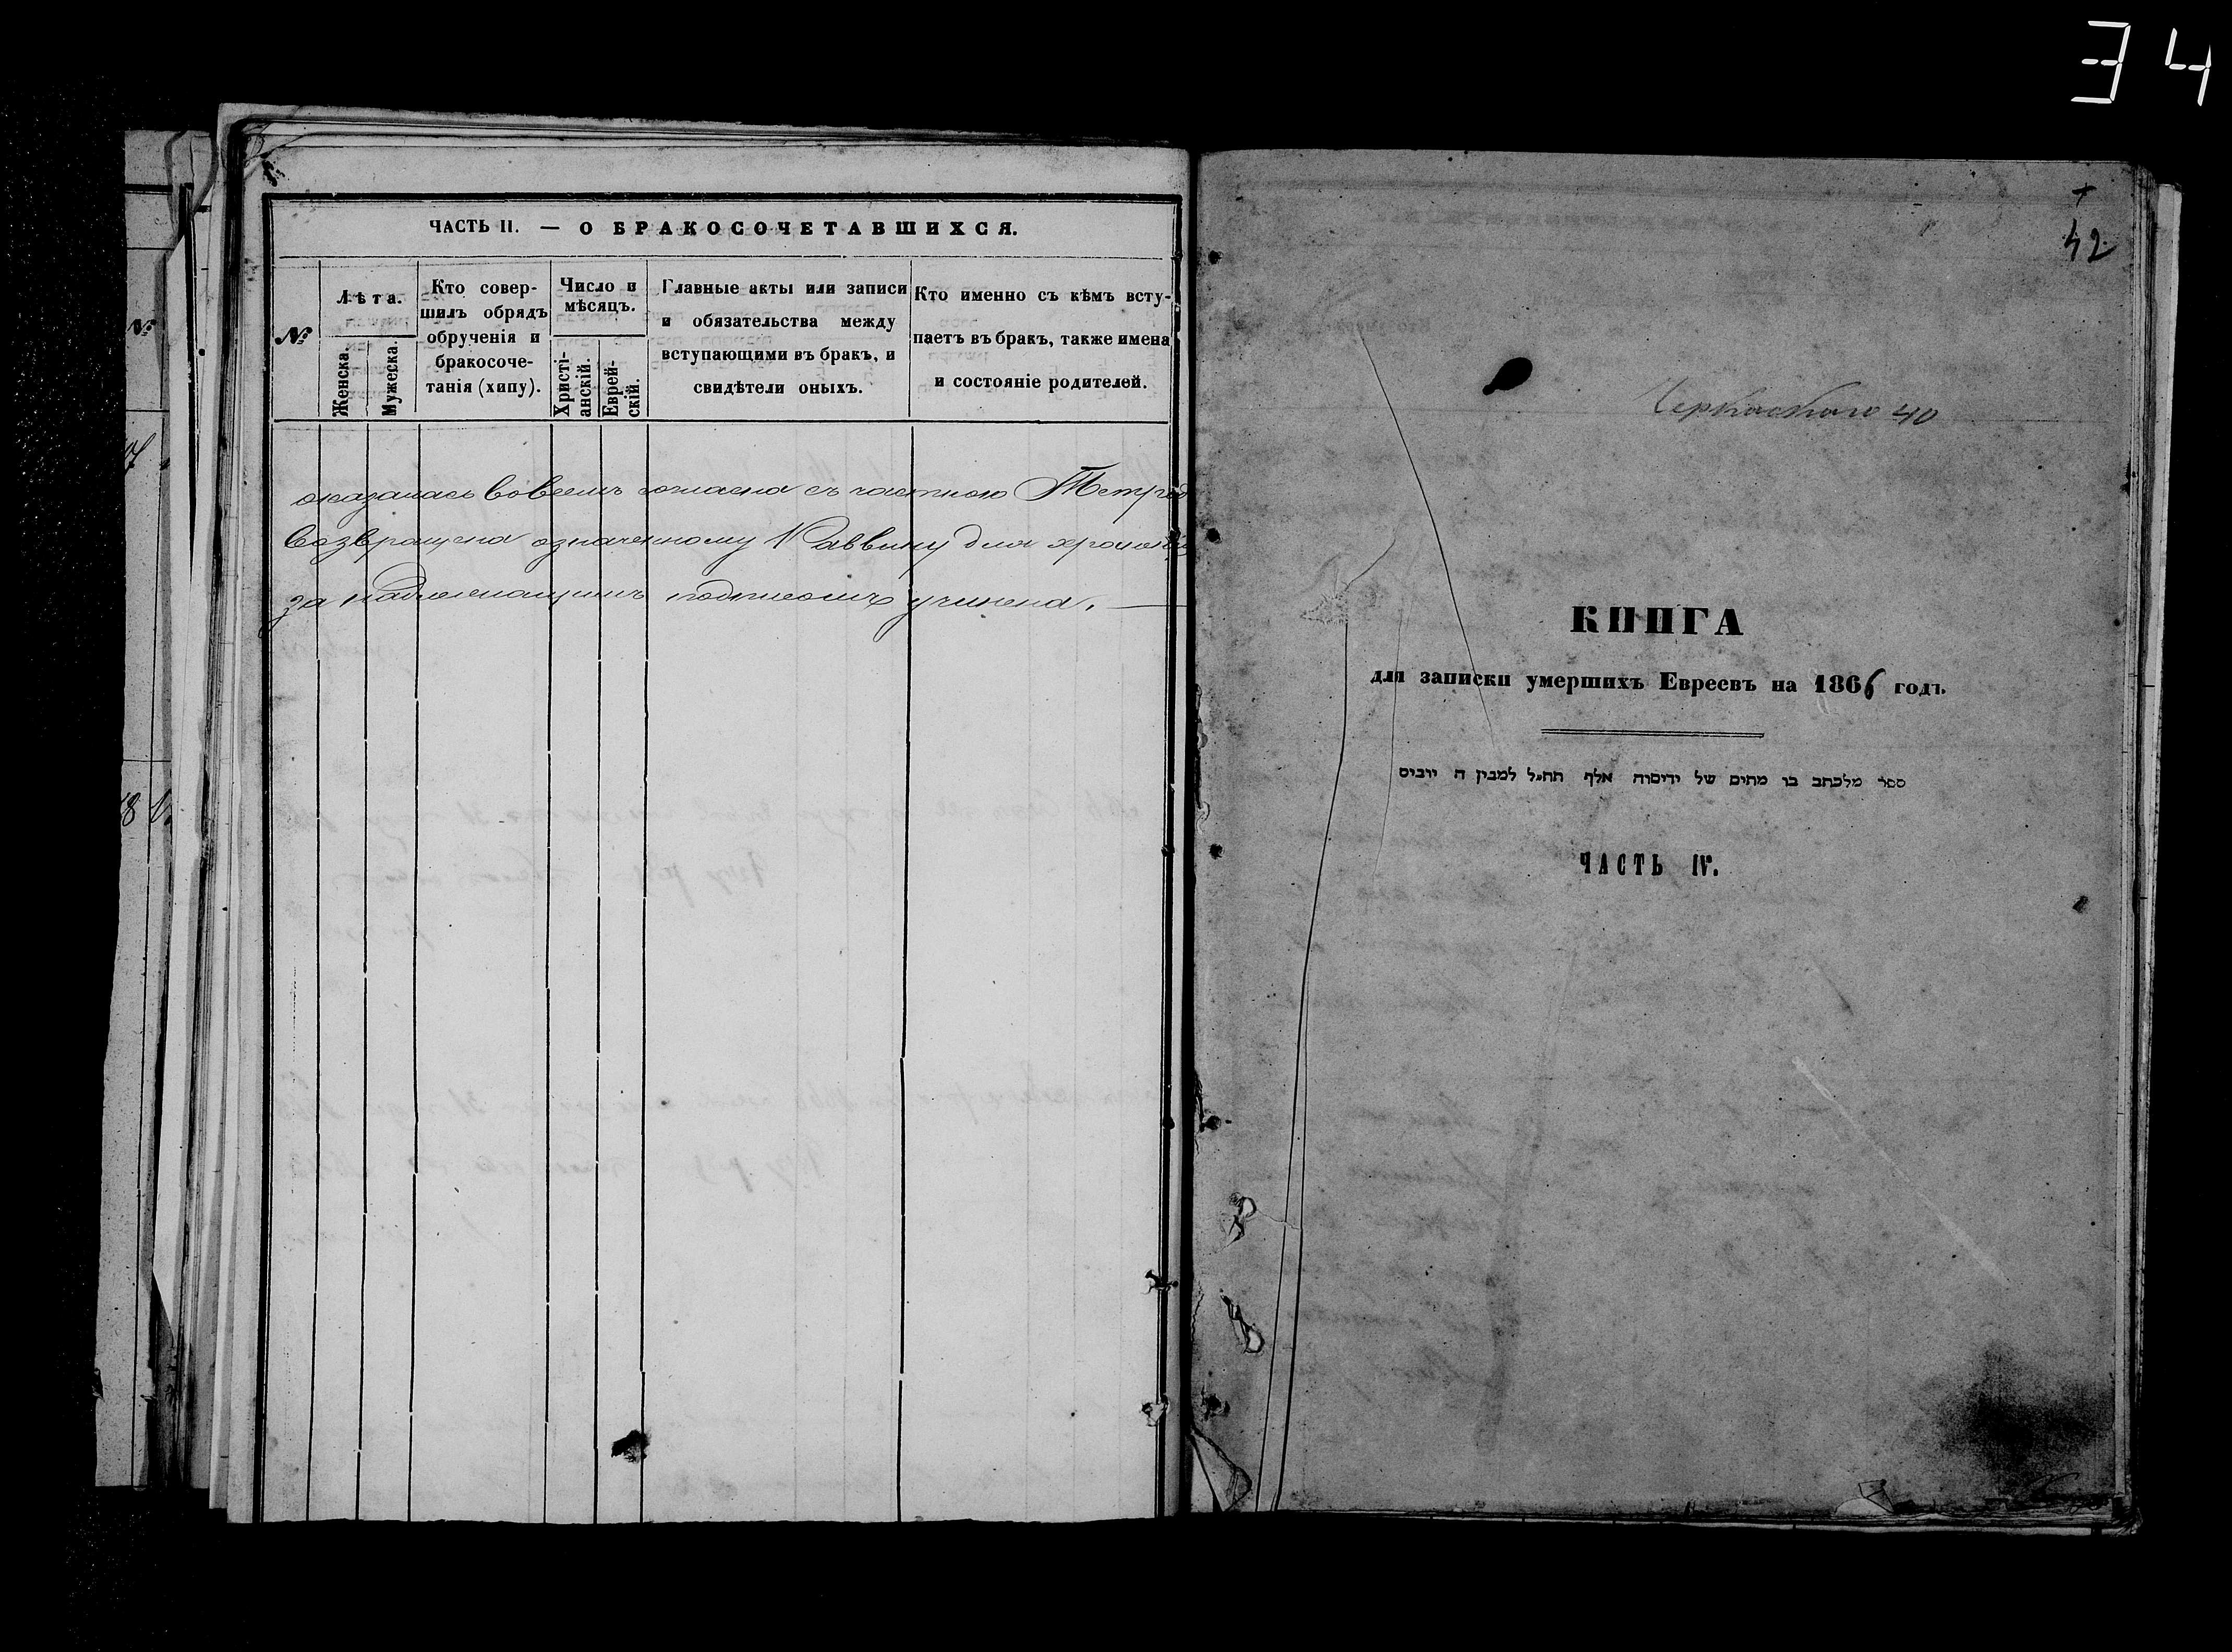 34
ЧАСТЬ II. — О БРАКОСОЧЕТАВШИХСЯ.
№
Лѣта.
Женска.
Мужеска.
Кто совер-
шилъ обрядъ
обрученія и
бракосоче-
танія (хипу).
Число и
мѣсяцъ.
Христі-
анскій.
Еврей-
скій.
Главные акты или записи
и обязательства между
вступающими въ бракъ, и
свидѣтели оныхъ.
Кто именно съ кѣмъ всту-
паетъ въ бракъ, также имена
и состояніе родителей.
оказалась вовсемъ согласна съ частною Тетрад
возвращена означенному Раввину для храненія
за надлежащимъ подписомъ учинена. —
№
42
Черкаскаго 40
КНИГА
для записки умершихъ Евреевъ на 1866 годъ.
ספר מלכתב בו מתים של
אלף
ЧАСТЬ IV.